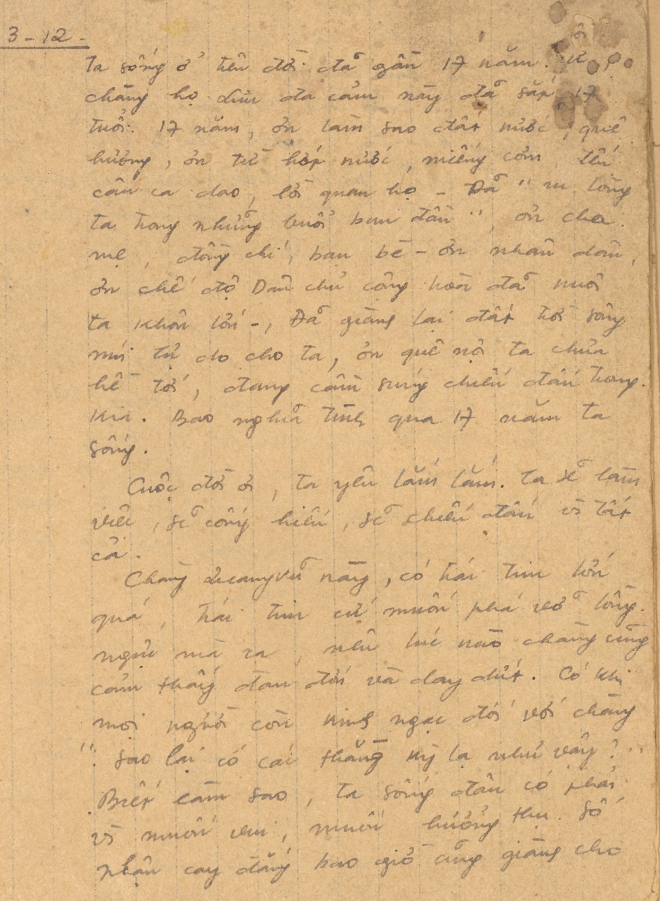 3-12.
ta sống ở trên đời đã gần 17 năm.
chàng họ đa cảm này đã sắp 17
tuổi. 17 năm, ơn làm sao đất nước, quê
hương, ơn từ hớp nước, miếng cơm đến
câu ca dao, lời quan họ - Đã "ru lòng
ta trong những buổi ban đầu", ơn cha
mẹ, đồng chí, bạn bè - ơn nhân dân,
ơn chế độ Dân chủ cộng hoà đã nuôi
ta khôn lớn -, Đã giành lại đất trời sông
núi tự do cho ta, ơn quê nội ta chưa
hề tới, đang cầm súng chiến đấu trong
kia. Bao nghĩa tình qua 17 năm ta
sống.
Cuộc đời ơi, ta yêu lắm lắm. Ta sẽ làm
việc, sẽ cống hiến, sẽ chiến đấu vì tất
cả.
Chàng này, có trái tim lớn
quá, trái tim cứ muốn phá vỡ lồng
ngực mà ra nên lúc nào chàng cũng
cảm thấy đau đớn và day dứt. Có khi
mọi người còn kinh ngạc đối với chàng
": Sao lại có cái thằng kỳ lạ như vậy?"
Biết làm sao, ta sống đâu có phải
vì muốn vui, muốn hưởng thụ. Số
phận cay đắng bao giờ cũng giành cho